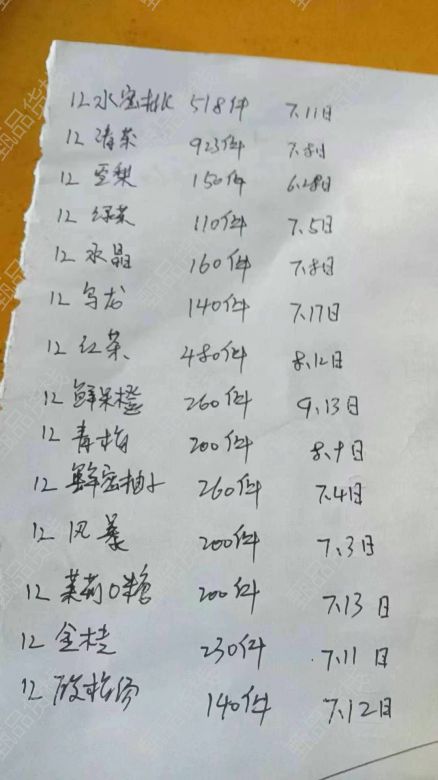 12 水宓桃 518件 7.11日
12 清茶 923件 7.8日
12 雪梨 150件 6.28日
12 绿茶 110件 7.5日
12 水晶 160件 7.8日
12 乌龙 140件 7.17日
12 红茶 480件 8.12日
12 鲜果橙 260件 9.13日
12 青梅 200件 8.9日
12 鲜宓柚 260件 7.4日
12 风暴 200件 7.3日
12 茉莉0糖 200件 7.13日
12 金桔 230件 7.11日
12 酸梅汤 140件 7.12日
甄品货栈